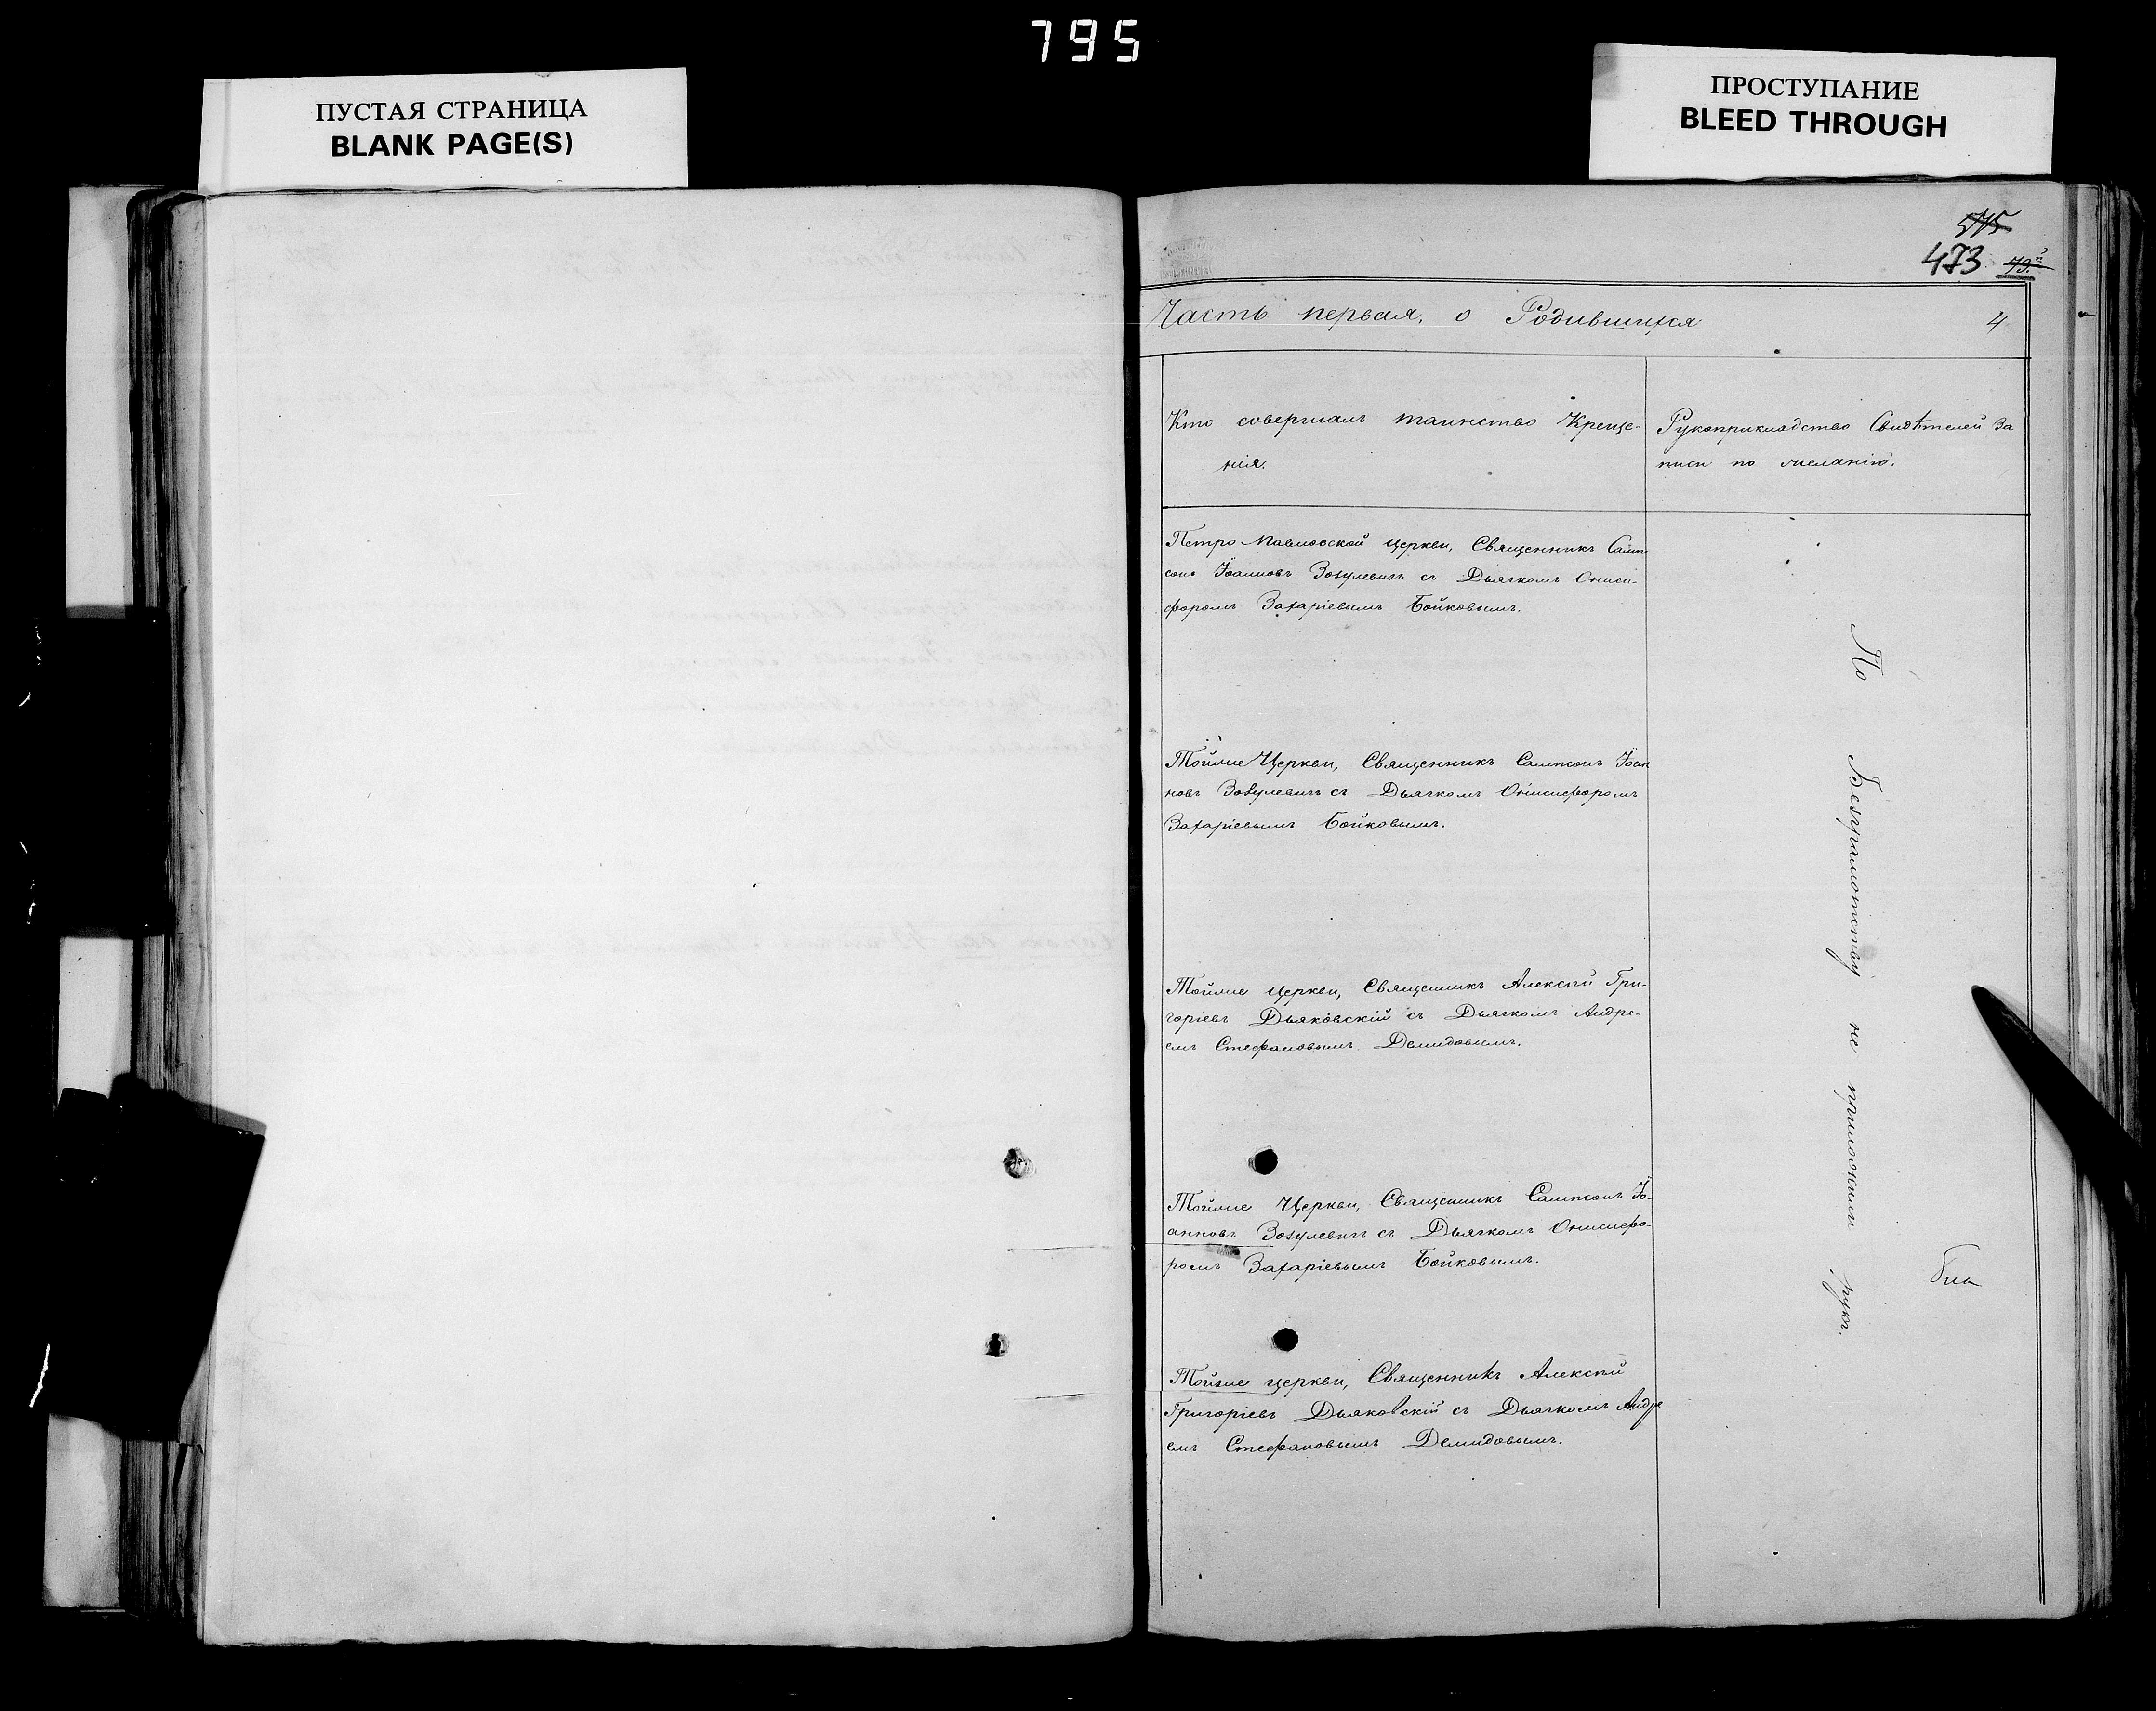 795
ПУСТАЯ СТРАНИЦА
BLANK PAGE(S)
ПРОСТУПАНИЕ
BLEED THROUGH
575
473
Часть первая, о Родившихся 4
Кто совершалъ таинство Креще-
нія.
Рукоприкладство Свидѣтелей За
писи по желанію.
Петро Павловской Церкви, Священникъ Самп
сонъ Іоанновъ Зозулевичъ съ Дьячкомъ Ониси-
форомъ Захаріевымъ Бойковымъ.
Тойже Церкви, Священникъ Сампсонъ Іоан
новъ Зозулевичъ съ Дьячкомъ Онисифоромъ
Захаріевымъ Бойковымъ.
Тойже Церкви, Священникъ Алексій Гри-
горіевъ Дьяковскій съ Дьячкомъ Андре-
емъ Стефановымъ Демидовымъ.
Тойже Церкви, Священникъ Сампсонъ Іо-
анновъ Зозулевичъ съ Дьячкомъ Онисифо-
ромъ Захаріевымъ Бойковымъ.
Тойже церкви, Священникъ Алексій
Григоріевъ Дьяковскій съ Дьячкомъ Андре
емъ Стефановымъ Демидовымъ.
По Безграмотству не приложили рукъ.